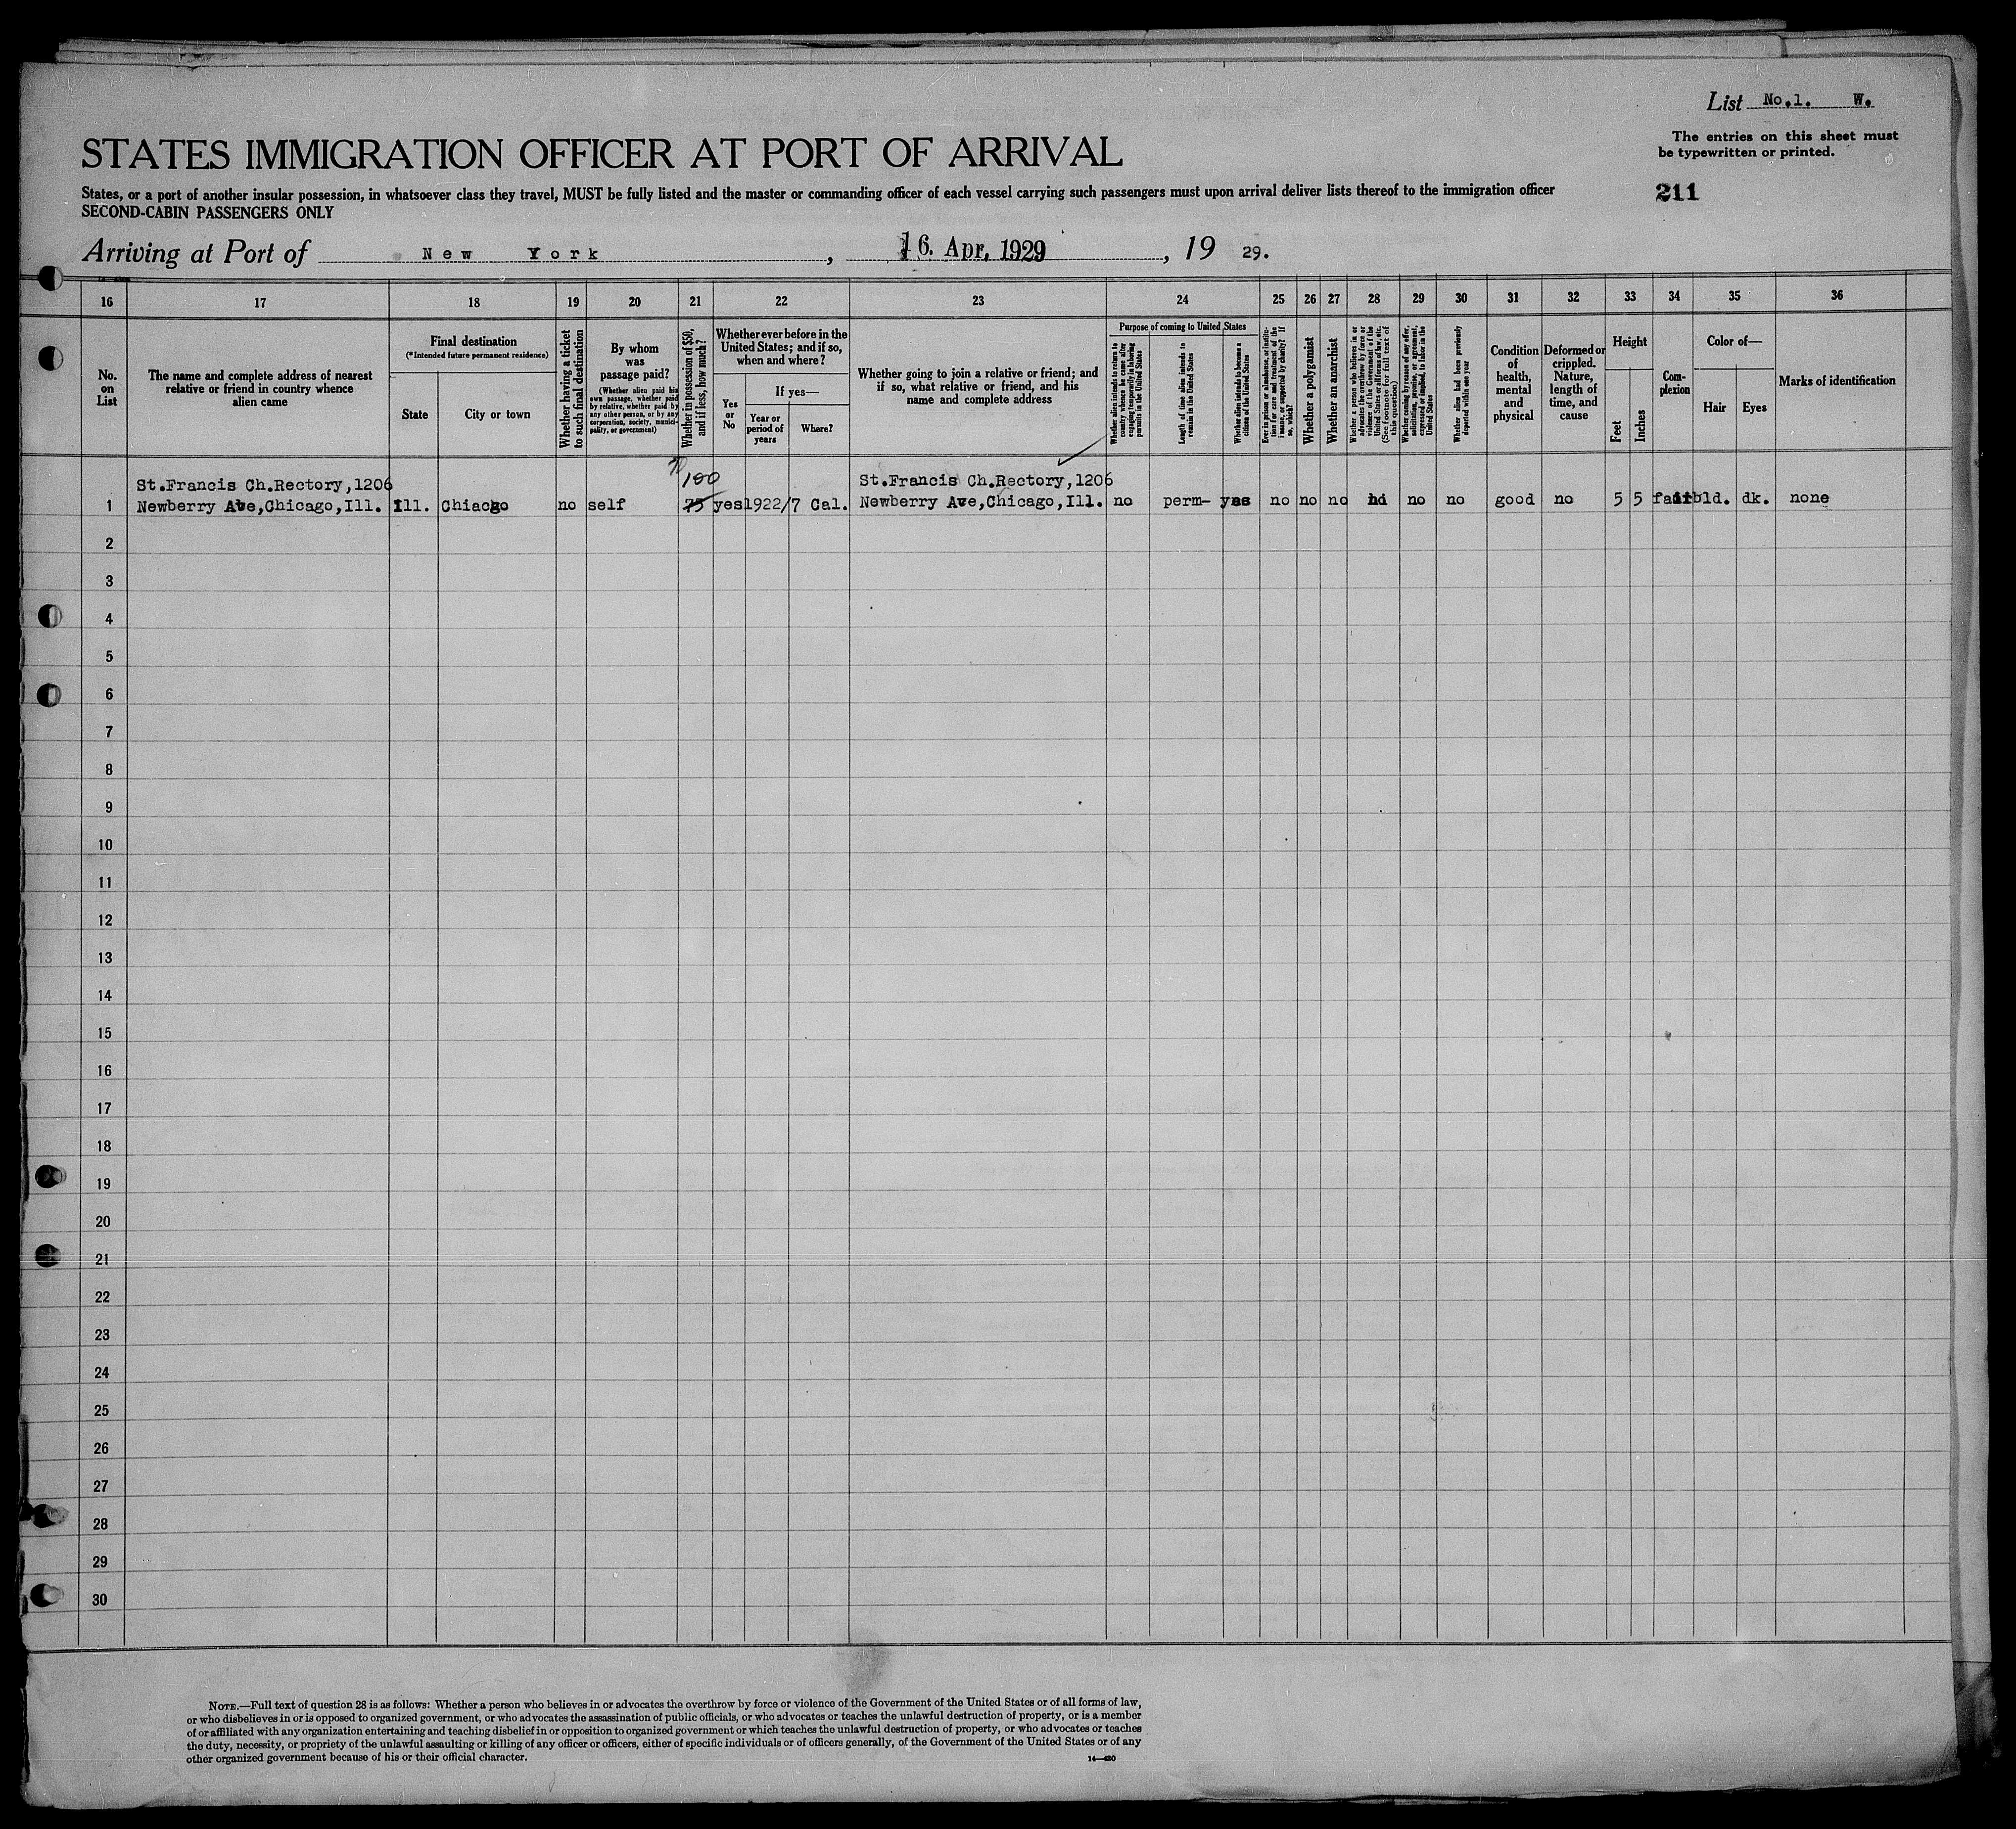 List No.1. W.
The entries on this sheet must
be typewritten or printed.
STATES IMMIGRATION OFFICER AT PORT OF ARRIVAL
211
States, or a port of another insular possession, in whatsoever class they travel, MUST be fully listed and the master or commanding officer of each vessel carrying such passengers must upon arrival deliver lists thereof to the immigration officer
SECOND-CABIN PASSENGERS ONLY
Arriving at Port of New York , 16. Apr. 1929 , 19 29.
16 17 18 19 20 21 22 23 24 25 26 27 28 29 30 31 32 33 34 35 36
No.
on
List
The name and complete address of nearest
relative or friend in country whence
alien came
Final destination
(*Intended future permanent residence)
State
City or town
Whether having a ticket
to such final destination
By whom
was
passage paid?
(Whether alien paid his
own passage, whether paid
by relative, whether paid by
any other person, or by any
corporation, society, munici-
pality, or government)
Whether in possession of $50,
and if less, how much?
Whether ever before in the
United States; and if so,
when and where?
Yes
or
No
If yes—
Year or
period of
years
Where?
Whether going to join a relative or friend; and
if so, what relative or friend, and his
name and complete address
Purpose of coming to United States
Whether alien intends to return to
country whence he came after
engaging temporarily in laboring
pursuits in the United States
Length of time alien intends to
remain in the United States
Whether alien intends to become a
citizen of the United States
Ever in prison or almshouse, or institu-
tion for care and treatment of the
insane, or supported by charity? If
so, which?
Whether a polygamist
Whether an anarchist
Whether a person who believes in or
advocates the overthrow by force or
violence of the Government of the
United States or all forms of law, etc.
(See footnote for full text of
this question)
Whether coming by reason of any offer,
solicitation, promise, or agreement,
expressed or implied, to labor in the
United States
Whether alien had been previously
deported within one year
Condition
of
health,
mental
and
physical
Deformed or
crippled.
Nature,
length of
time, and
cause
Height
Feet
Inches
Com-
plexion
Color of—
Hair
Eyes
Marks of identification
100
St.Francis Ch.Rectory,1206 St.Francis Ch.Rectory,1206
1 Newberry Ave,Chicago,Ill. Ill. Chiacgo no self 75 yes 1922/7 Cal. Newberry Ave,Chicago,Ill. no perm- yes no no no no no no good no 5 5 fair bld. dk. none
2
3
4
5
6
7
8
9
10
11
12
13
14
15
16
17
18
19
20
21
22
23
24
25
26
27
28
29
30
NOTE.—Full text of question 28 is as follows: Whether a person who believes in or advocates the overthrow by force or violence of the Government of the United States or of all forms of law,
or who disbelieves in or is opposed to organized government, or who advocates the assassination of public officials, or who advocates or teaches the unlawful destruction of property, or is a member
of or affiliated with any organization entertaining and teaching disbelief in or opposition to organized government or which teaches the unlawful destruction of property, or who advocates or teaches
the duty, necessity, or propriety of the unlawful assaulting or killing of any officer or officers, either of specific individuals or of officers generally, of the Government of the United States or of any
other organized government because of his or their official character.
14—430